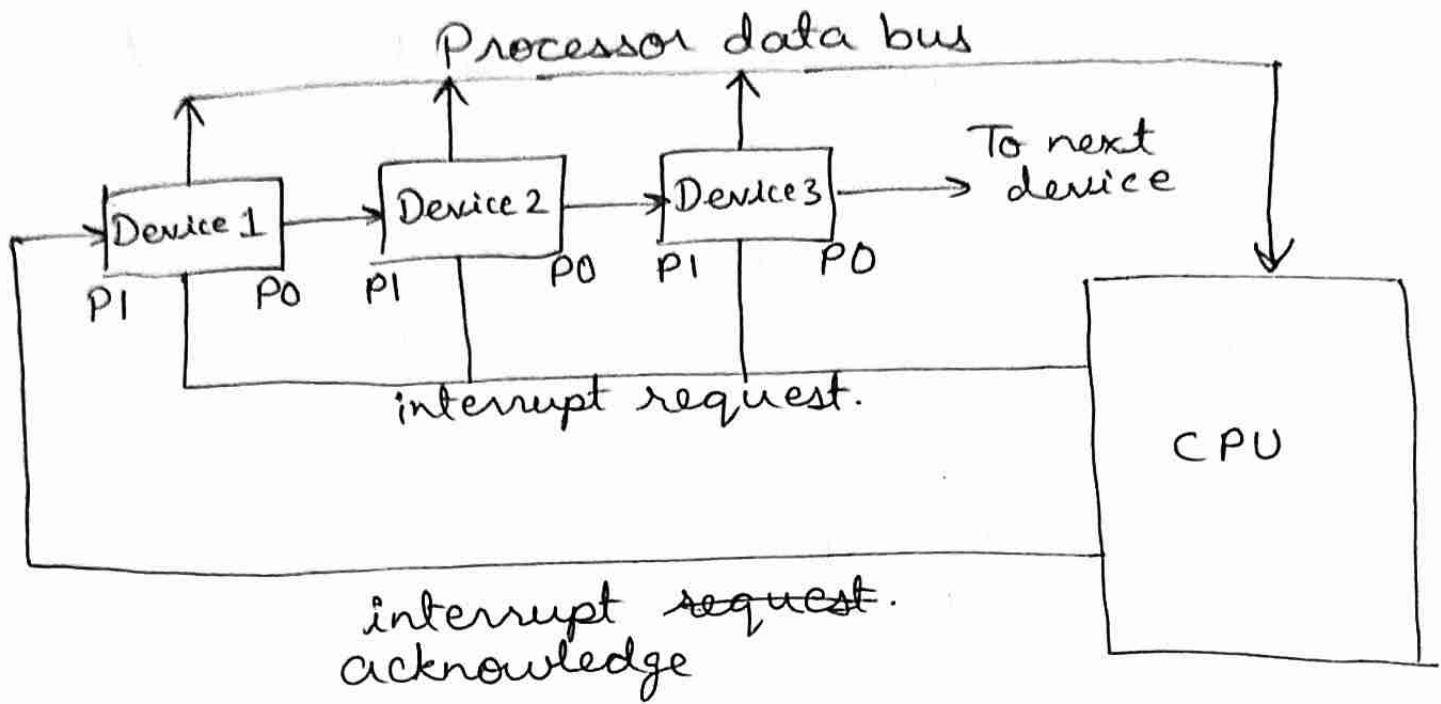 Processor data bus
To next
device
Device 1
Device 2
Device 3
PI
PO
PI
PO
PI
PO
interrupt request.
CPU
interrupt request.
acknowledge